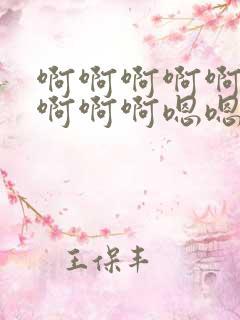 啊啊啊啊啊
啊啊啊嗯嗯
王保丰